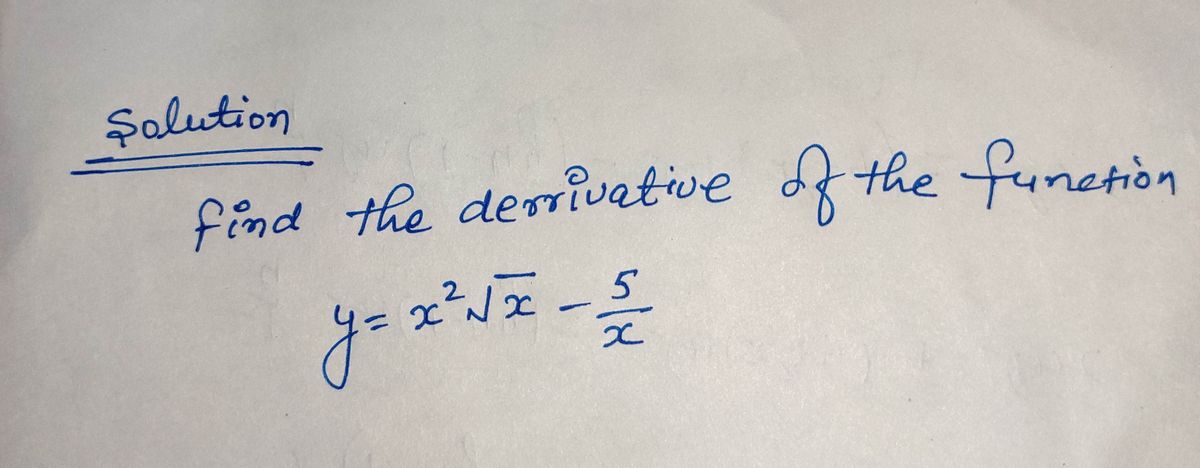 Solution
find the derrivative of the function
y = x²√x - 5/x